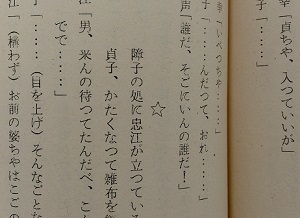 幸「貞ちや、入つていいが」
幸「いべつちや……」
「……んだつて、おれ……」
声「誰だ、そこにいんの誰だ！」
☆
障子の処に忠江が立つている
貞子、かたくなつて雑布を
江「男、米んの待つてたんだべ、こ
でで……」
「……（目を上げ）そんなごとな
江「（構わず）お前の婆ちやはこごの